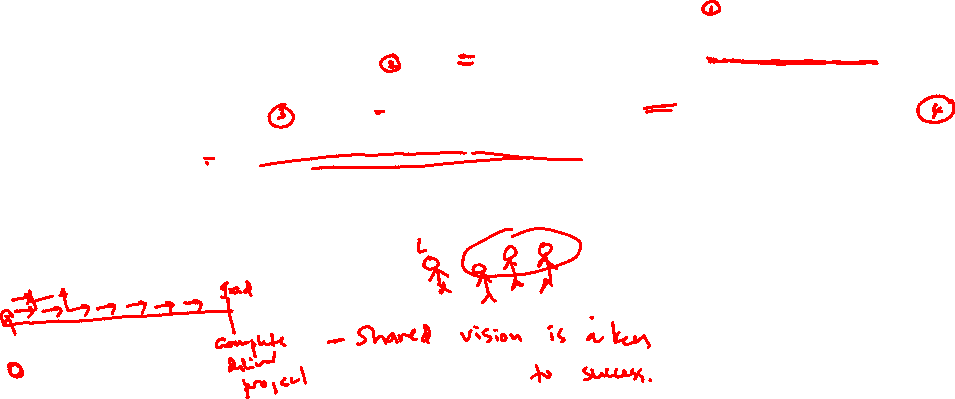 ①
② =
③ - = ④
-
L
goal
complete
project
0
- Shared vision is a key
to success.